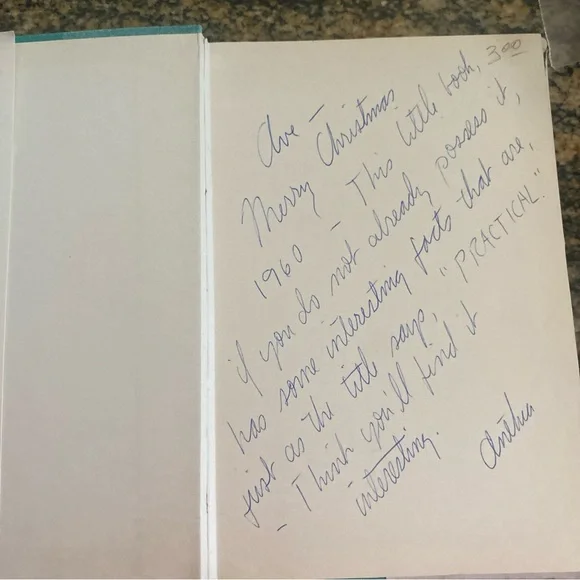 3.00
Ave —
Merry Christmas
1960 — This little book,
if you do not already possess it,
has some interesting facts that are,
just as the title says, "PRACTICAL."
— Think you'll find it
interesting.
Anthea